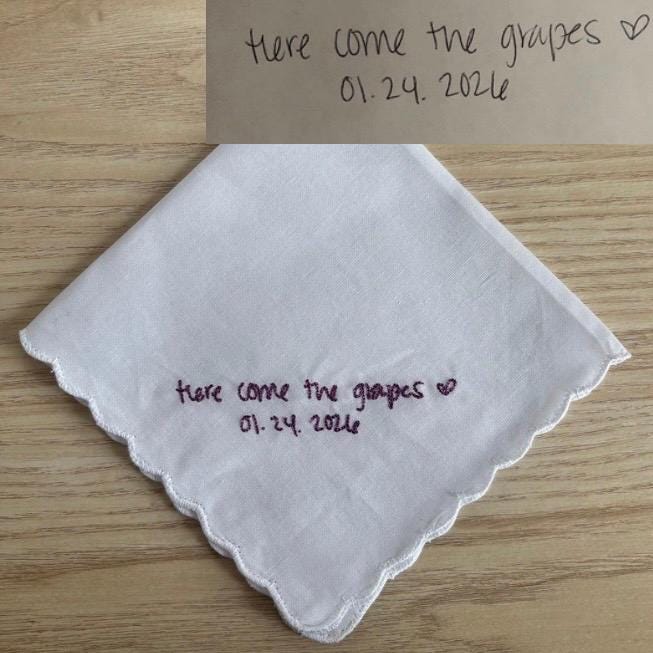 Here come the grapes ♡
01.24.2026
Here come the grapes ♡
01.24.2026